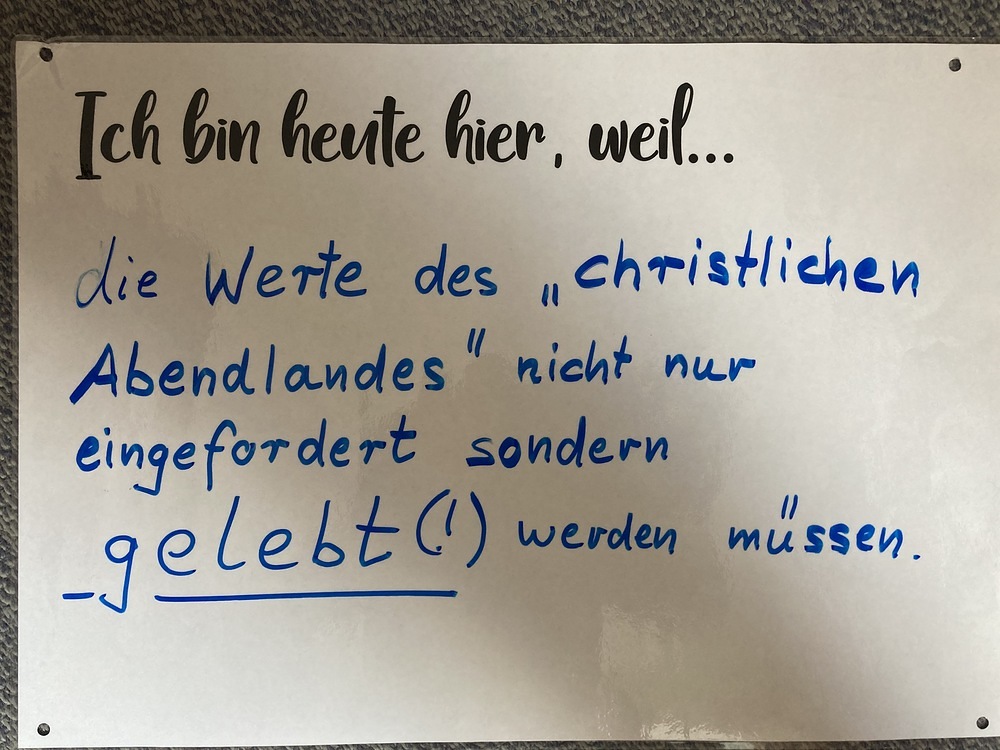 Ich bin heute hier, weil...
die Werte des „christlichen
Abendlandes" nicht nur
eingefordert sondern
gelebt(!) werden müssen.